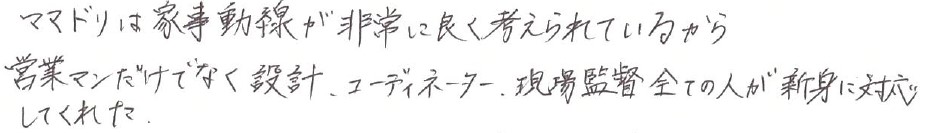 ママドリは家事動線が非常に良く考えられているから
営業マンだけでなく設計、コーディネーター、現場監督全ての人が新身に対応
してくれた.